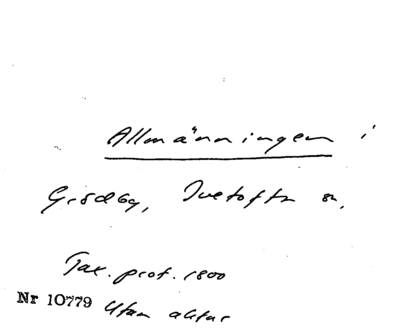 Allmänningen i
Gisdby, Ivetofta sn.
Tax. prot. 1800
Nr 10779 Utan aktas